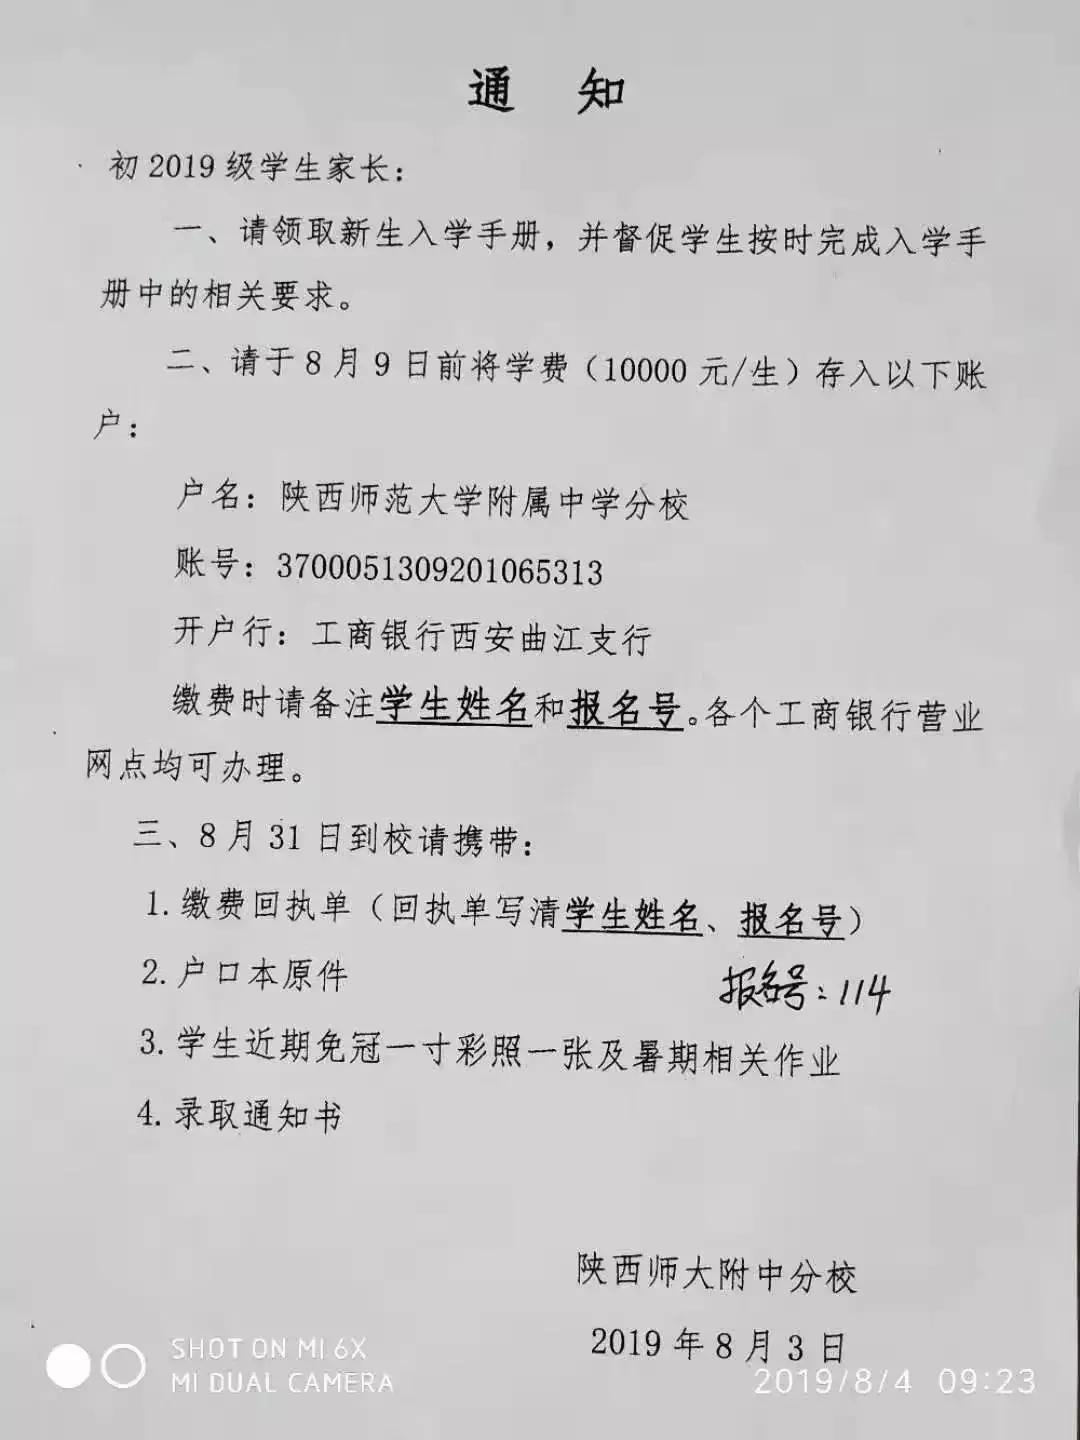 通 知
初2019级学生家长：
一、请领取新生入学手册，并督促学生按时完成入学手
册中的相关要求。
二、请于8月9日前将学费（10000元/生）存入以下账
户：
户名：陕西师范大学附属中学分校
账号：3700051309201065313
开户行：工商银行西安曲江支行
缴费时请备注学生姓名和报名号。各个工商银行营业
网点均可办理。
三、8月31日到校请携带：
1.缴费回执单（回执单写清学生姓名、报名号）
2.户口本原件
报名号：114
3.学生近期免冠一寸彩照一张及暑期相关作业
4.录取通知书
陕西师大附中分校
2019年8月3日
SHOT ON MI 6X
MI DUAL CAMERA
2019/8/4 09:23